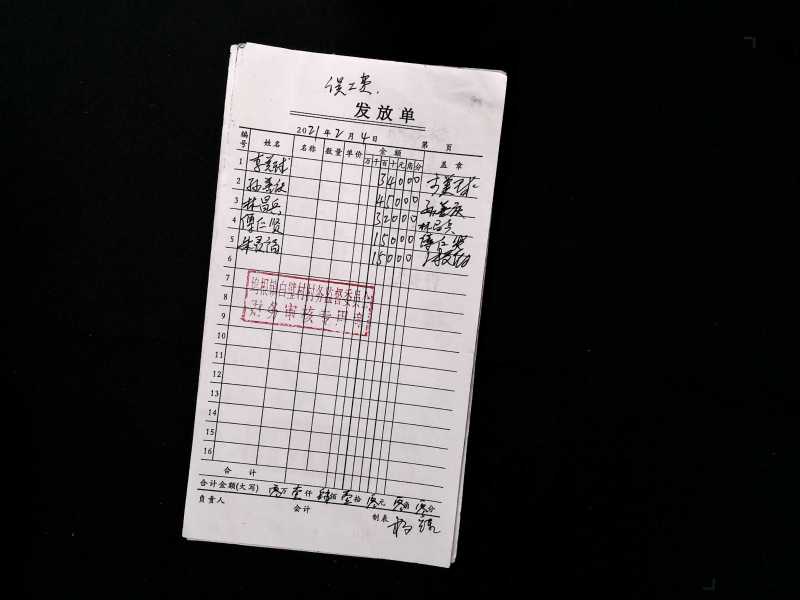 误工费.
发放单
2021年2月4日 第 页
编号 姓名 名称 数量 单价 金额 盖章
万千百十元角分
1 李美球 34000
2 孙善庆 45000 孙善庆
3 林昌兵 32000 林昌兵
4 傅仁贤 15000 傅仁贤
5 15000
6
7
8
9
10
11
12
13
14
15
16
白壁村村务监督委员会
财务审核专用章
合计
合计金额(大写) 零万壹仟肆佰壹拾零元零角零分
负责人 会计 制表